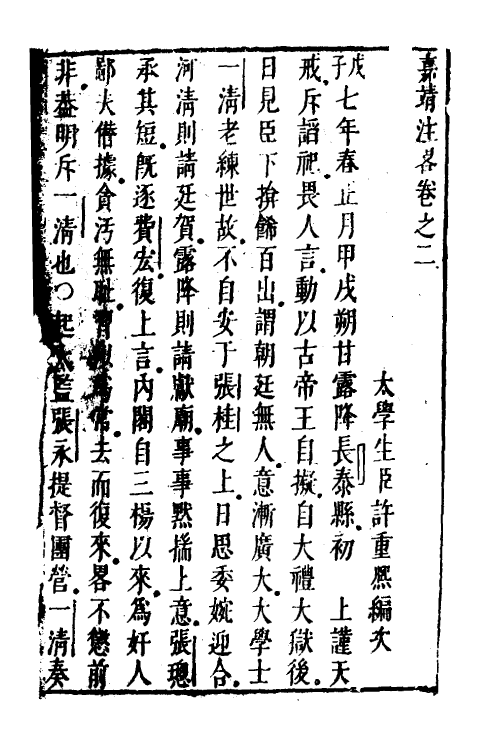 嘉靖注畧卷之二
太學生臣許重熈編次
戊子七年春正月甲戌朔甘露降長泰縣初　上謹天
戒斥謟祀畏人言動以古帝王自擬自大禮大獄後
日見臣下揜餙百出謂朝廷無人意漸廣大大學士
一清老練世故不自安于張桂之上日思委婉迎合
河清則請廷賀露降則請獻廟事事黙揣上意張璁
承其短旣逐費宏復上言內閣自三楊以來爲奸人
鄙夫僣據貪汚無耻習爲常去而復來畧不懲前
非葢明斥一清也○起太監張永提督團營一清奏